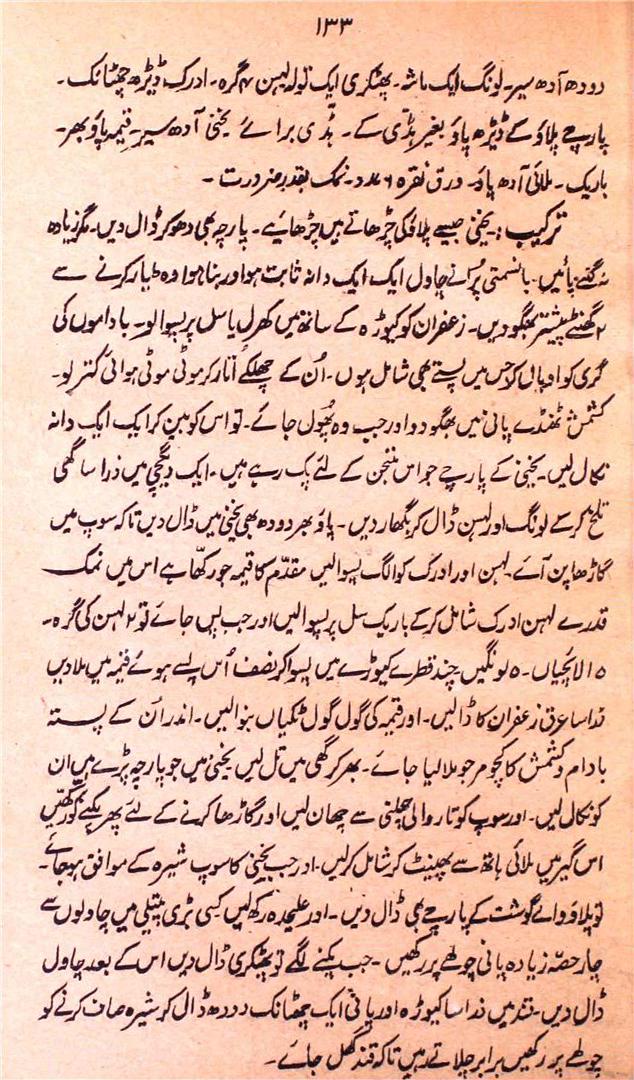 ۱۳۳
دودھ آدھ سیر۔ لونگ ایک ماشہ۔ پھٹکری ایک تولہ لہسن ۴ گرہ۔ ادرک ڈیڑھ چھٹانک۔
پارچے پلاؤ کے ڈیڑھ پاؤ بغیر ہڈّی کے۔ ہڈّی برائے یخنی آدھ سیر۔ قیمہ پاؤ بھر۔
باریک۔ ملائی آدھ پاؤ۔ ورق نقرہ ۶ عدد۔ نمک بقدر ضرورت۔
ترکیب: یخنی جیسے پلاؤ کی چڑھاتے ہیں چڑھائیے۔ پارچہ بھی دھو کر ڈال دیں۔ مگر زیادہ
نہ گلنے پائیں۔ باسمتی پرانے چاول ایک ایک دانہ ثابت ہو اور بنا ہوا وہ تیار کرنے سے
۲ گھنٹے پیشتر بھگو دیں۔ زعفران کو کیوڑہ کے ساتھ میں کھرل یا سل پر پسوا لو۔ باداموں کی
گری کو اوبال کر جس میں پستے بھی شامل ہوں۔ اُن کے چھلکے اُتار کر موٹی موٹی ہوائی کتر لو۔
کشمش ٹھنڈے پانی میں بھگو دو اور جب وہ پھول جائے۔ تو اس کو بین کر ایک ایک دانہ
نکال لیں۔ یخنی کے پارچے جو اس متنجن کے لئے پک رہے ہیں۔ ایک دیگچی میں ذرا سا گھی
تلخ کر کے لونگ اور لہسن ڈال کر بگھار دیں۔ پاؤ بھر دودھ بھی یخنی میں ڈال دیں تاکہ سوپ میں
گاڑھا پن آئے۔ لہسن اور ادرک کو الگ پسوا لیں مقدّم کا قیمہ جو رکھّا ہے اس میں نمک
قدرے لہسن ادرک شامل کر کے باریک سل پر پسوا لیں اور جب پس جائے تو ۲ لہسن کی گرہ۔
۱۵ الائچیاں۔ ۵ لونگیں۔ چند قطرے کیوڑے میں پسوا کر نصف اُس پسے ہوئے قیمہ میں ملا دیں
ذرا سا عرق زعفران کا ڈالیں۔ اور قیمہ کی گول گول ٹکیاں بنوا لیں۔ اندر اُن کے پستہ
بادام و کشمش کا کچومر جو ملا لیا جائے۔ بھر کر گھی میں تل لیں یخنی میں جو پارچہ پڑے ہیں ان
کو نکال لیں۔ اور سوپ کو تار والی چھلنی سے چھان لیں اور گاڑھا کرنے کے لئے پھر پکنے کو رکھّیں
اس میں ملائی ہاتھ سے پھینٹ کر شامل کر لیں۔ اور جب یخنی کا سوپ شیرہ کے موافق ہو جائے۔
تو پلاؤ والے گوشت کے پارچے بھی ڈال دیں۔ اور علیحدہ رکھ لیں کسی بڑی پتیلی میں چاولوں سے
چار حصّہ زیادہ پانی چولھے پر رکھیں۔ جب پکنے لگے تو پھٹکری ڈال دیں اس کے بعد چاول
ڈال دیں۔ قند میں ذرا سا کیوڑہ اور پانی ایک چھٹانک دودھ ڈال کر شیرہ صاف کرنے کو
چولھے پر رکھیں برابر چلاتے رہیں تاکہ قند گھل جائے۔